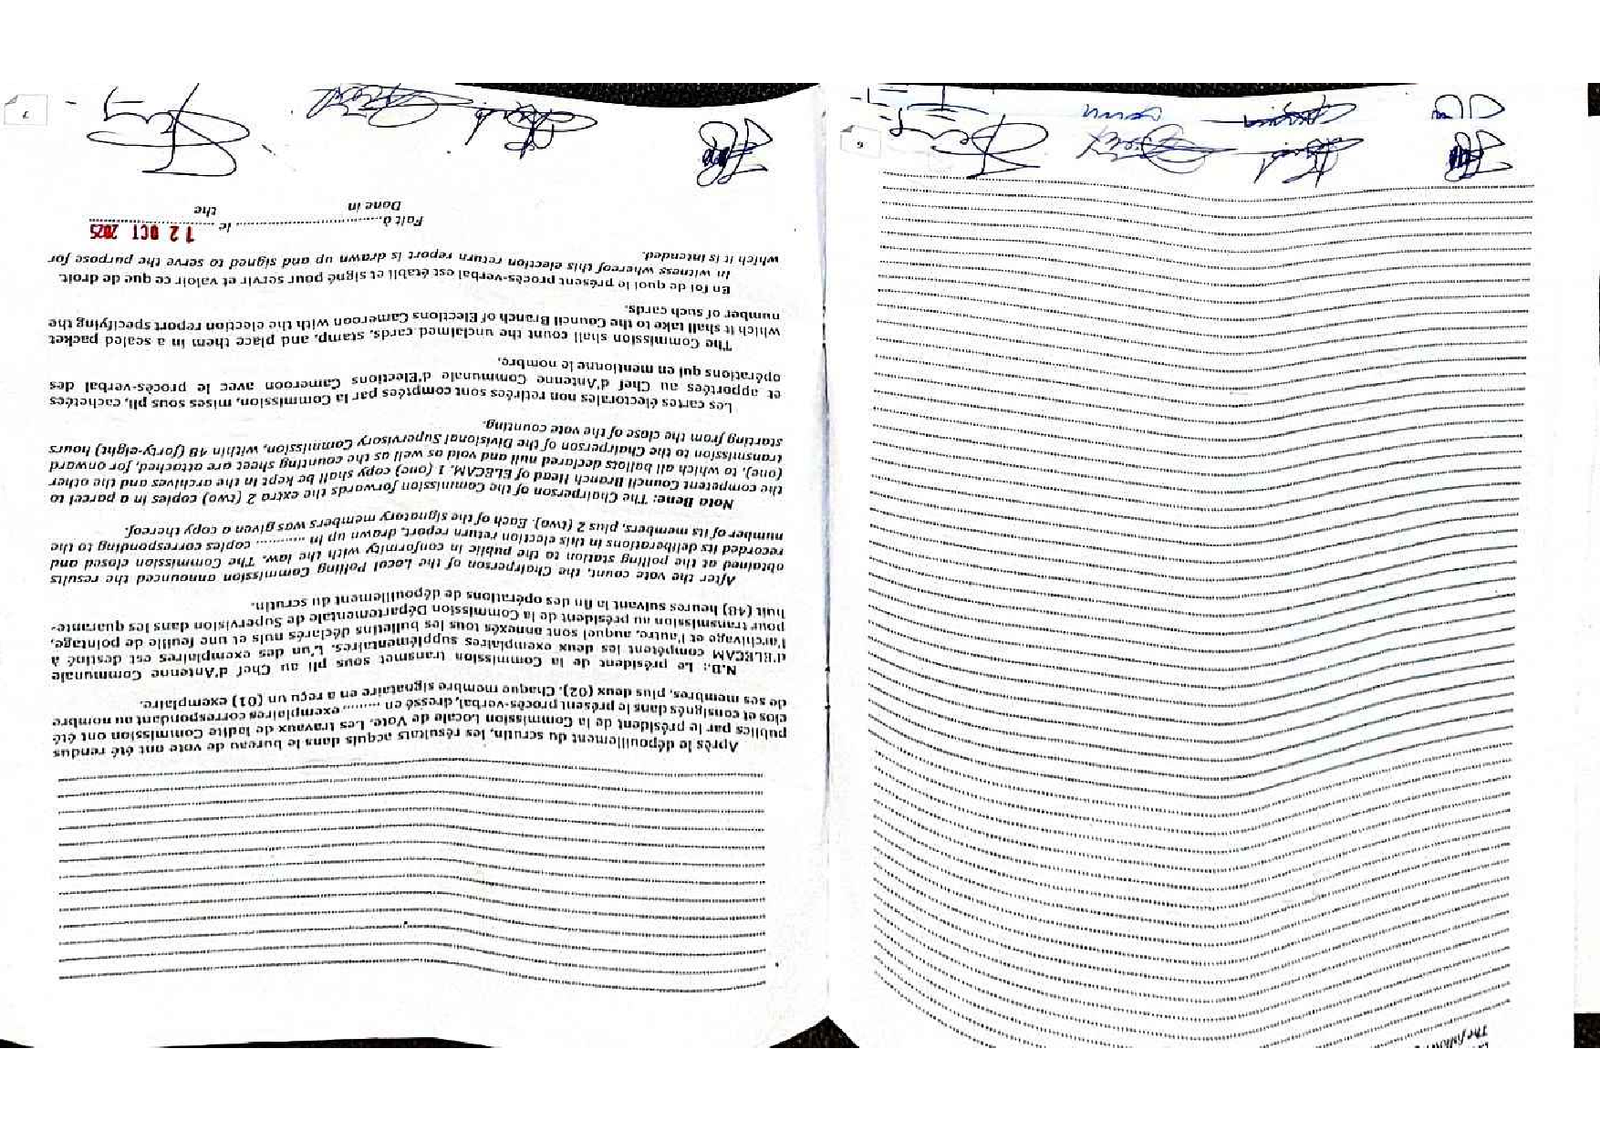 The follow
6
Après le dépouillement du scrutin, les résultats acquis dans le bureau de vote ont été rendus
publics par le président de la Commission Locale de Vote. Les travaux de ladite Commission ont été
clos et consignés dans le présent procès-verbal, dressé en ......... exemplaires correspondant au nombre
de ses membres, plus deux (02). Chaque membre signataire en a reçu un (01) exemplaire.
N.B.: Le président de la Commission transmet sous pli au Chef d'Antenne Communale
d'ELECAM compétent les deux exemplaires supplémentaires. L'un des exemplaires est destiné à
l'archivage et l'autre, auquel sont annexés tous les bulletins déclarés nuls et une feuille de pointage,
pour transmission au président de la Commission Départementale de Supervision dans les quarante-
huit (48) heures suivant la fin des opérations de dépouillement du scrutin.
After the vote count, the Chairperson of the Local Polling Commission announced the results
obtained at the polling station to the public in conformity with the law. The Commission closed and
recorded its deliberations in this election return report, drawn up in .......... copies corresponding to the
number of its members, plus 2 (two). Each of the signatory members was given a copy thereof.
Nota Bene: The Chairperson of the Commission forwards the extra 2 (two) copies in a parcel to
the competent Council Branch Head of ELECAM, 1 (one) copy shall be kept in the archives and the other
(one), to which all ballots declared null and void as well as the counting sheet are attached, for onward
transmission to the Chairperson of the Divisional Supervisory Commission, within 48 (forty-eight) hours
starting from the close of the vote counting.
Les cartes électorales non retirées sont comptées par la Commission, mises sous pli, cachetées
et apportées au Chef d'Antenne Communale d'Elections Cameroon avec le procès-verbal des
opérations qui en mentionne le nombre.
The Commission shall count the unclaimed cards, stamp, and place them in a sealed packet
which it shall take to the Council Branch of Elections Cameroon with the election report specifying the
number of such cards.
En foi de quoi le présent procès-verbal est établi et signé pour servir et valoir ce que de droit.
In witness whereof this election return report is drawn up and signed to serve the purpose for
which it is intended.
Fait à.................................. le ......12 OCT 2025
Done in the
7